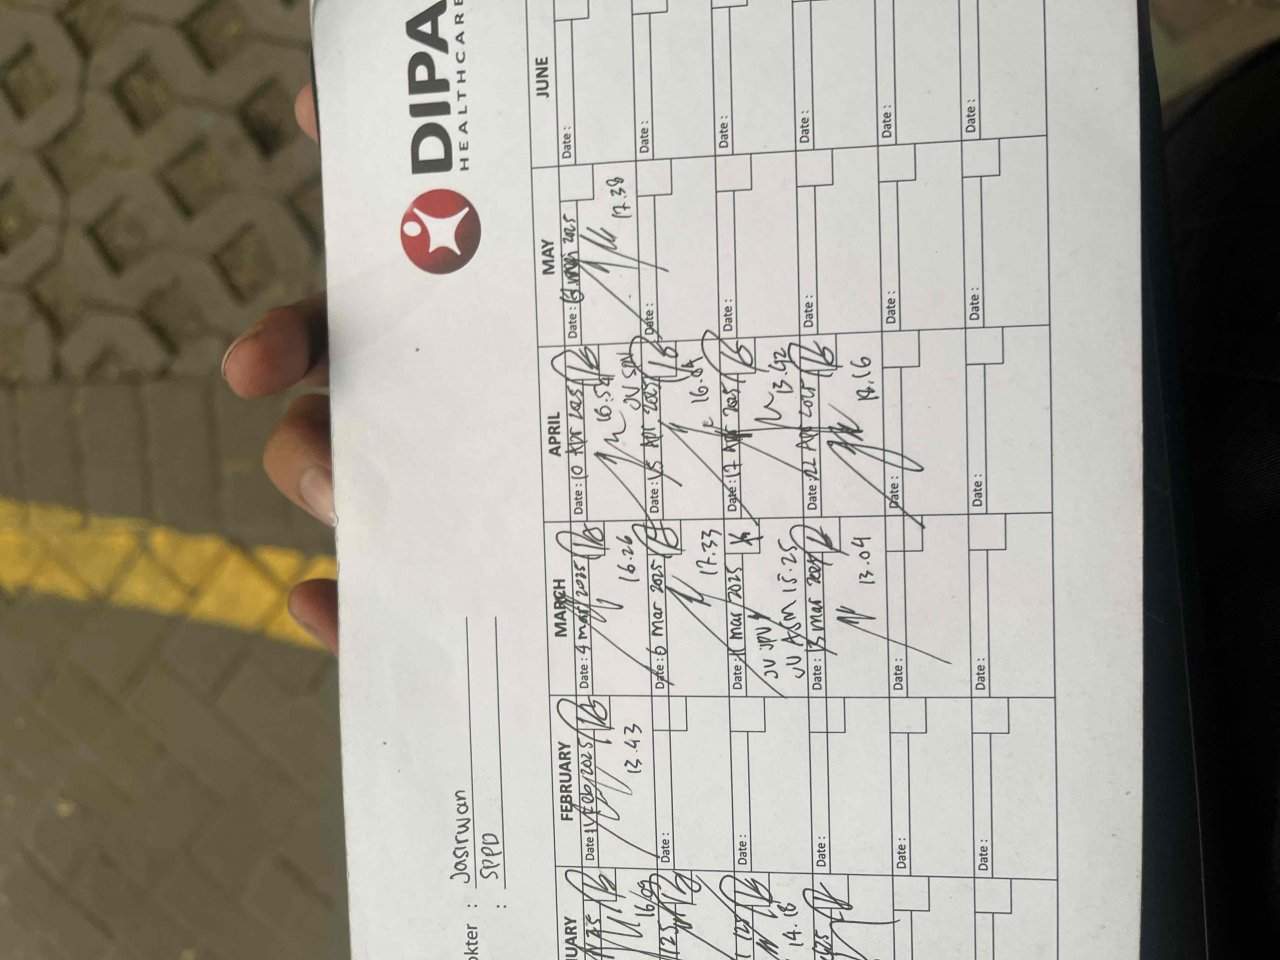 DIPA
HEALTHCARE
okter : Jasirwan
: SPPD
UARY
FEBRUARY
MARCH
APRIL
MAY
JUNE
Date :
Date : 4 mar 2025
Date : 10 Apr 2025
Date : mei 2025
Date :
16.26
16:54
17.38
13.43
JV SPV
Date :
Date : 6 mar 2025
Date : 15 Apr 2025
Date :
Date :
17.33
16.04
Date :
Date : 11 mar 2025
Date : 17 Apr 2025
Date :
Date :
JV JPV
JV ASM 15.25
13.42
14.18
Date :
Date : 13 mar 2025
Date : 22 Apr 2025
Date :
Date :
13.04
18.16
Date :
Date :
Date :
Date :
Date :
Date :
Date :
Date :
Date :
Date :